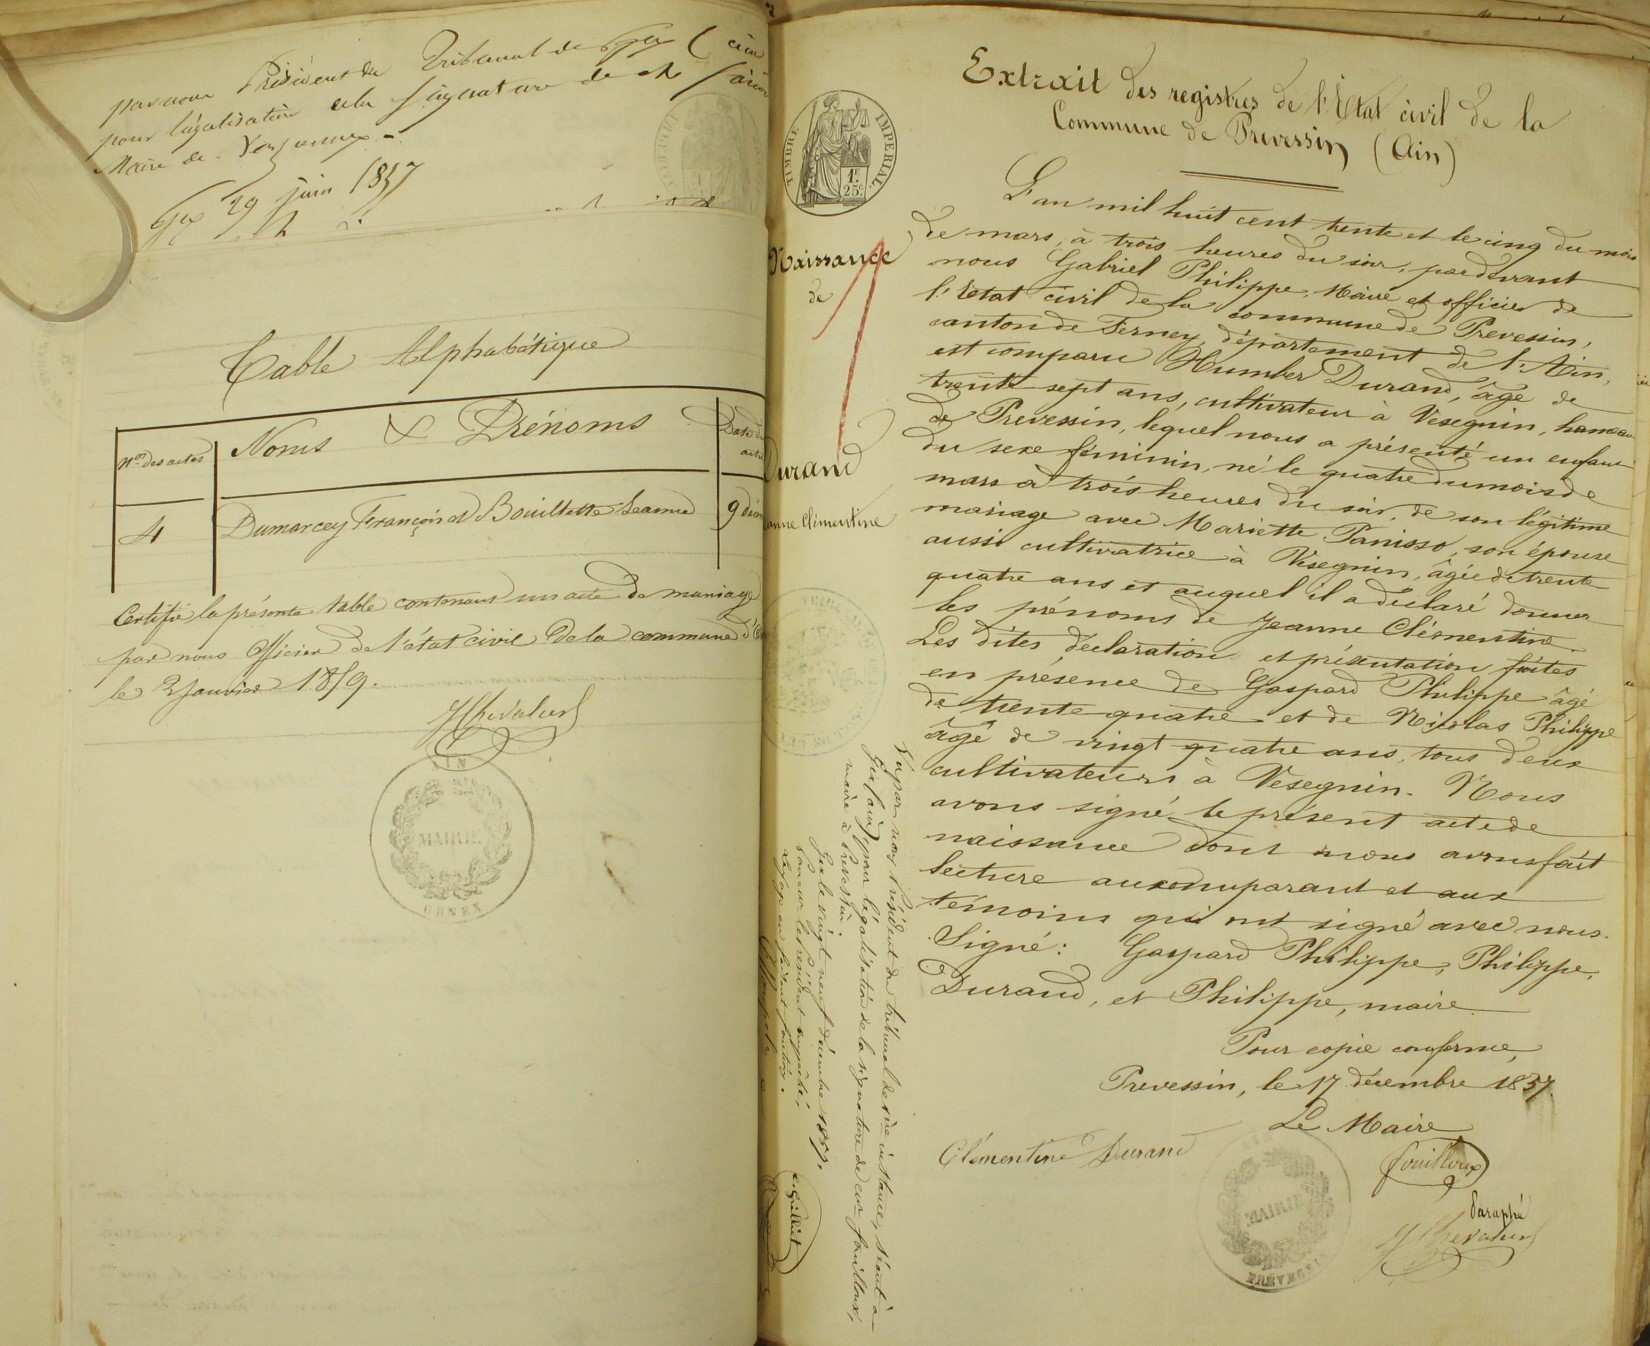 par nous Président du Tribunal de Gex (
pour légalisation de la signature de
Maire de
Gex 29 juin 1857
Table Alphabétique
Nos des actes
Noms & Prénoms
4
Dumarcey François et Bouillette Jeanne
9
Certifié la présente table contenant un acte de mariage
par nous Officier de l'état civil de la commune
le 2 Janvier 1859.
JChevalier
AIN
MAIRIE
ORNEX
TIMBRE IMPERIAL
1f.
25c.
Naissance
de
Durand
Jeanne Clémentine
Extrait des registres de l'Etat civil de la
Commune de Prevessin (Ain)
L'an mil huit cent trente et le cinq du mois
de mars, à trois heures du soir, pardevant
nous Gabriel Philippe, Maire et officier de
l'Etat civil de la commune de Prevessin,
canton de Ferney, département de l'Ain,
est comparu Humber Durand, âgé de
trente sept ans, cultivateur à Vesegnin, hameau
de Prevessin, lequel nous a présenté un enfant
du sexe féminin, né le quatre du mois de
mars à trois heures du soir, de son légitime
mariage avec Mariette Panisso, son épouse
aussi cultivatrice à Vesegnin, âgée de trente
quatre ans et auquel il a déclaré donner
les prénoms de Jeanne Clémentine.
Les dites déclaration et présentation faites
en présence de Gaspard Philippe âgé
de trente quatre et de Nicolas Philippe
âgé de vingt quatre ans, tous deux
cultivateurs à Vesegnin. Nous
avons signé le présent acte de
naissance dont nous avons fait
lecture au comparant et aux
témoins qui ont signé avec nous.
Signé: Gaspard Philippe, Philippe,
Durand, et Philippe, maire
Pour copie conforme,
Prevessin, le 17 décembre 1857
Le Maire
Clémentine Durand
fouilloux
Paraphé
JChevalier
MAIRIE
Vu par nous Président du tribunal de 1re instance, séant à
Gex (ain) pour légalisation de la signature de Mr fouilloux,
maire à Prevessin.
Gex le vingt neuf décembre 1857.
Pour le Président empêché,
Le juge